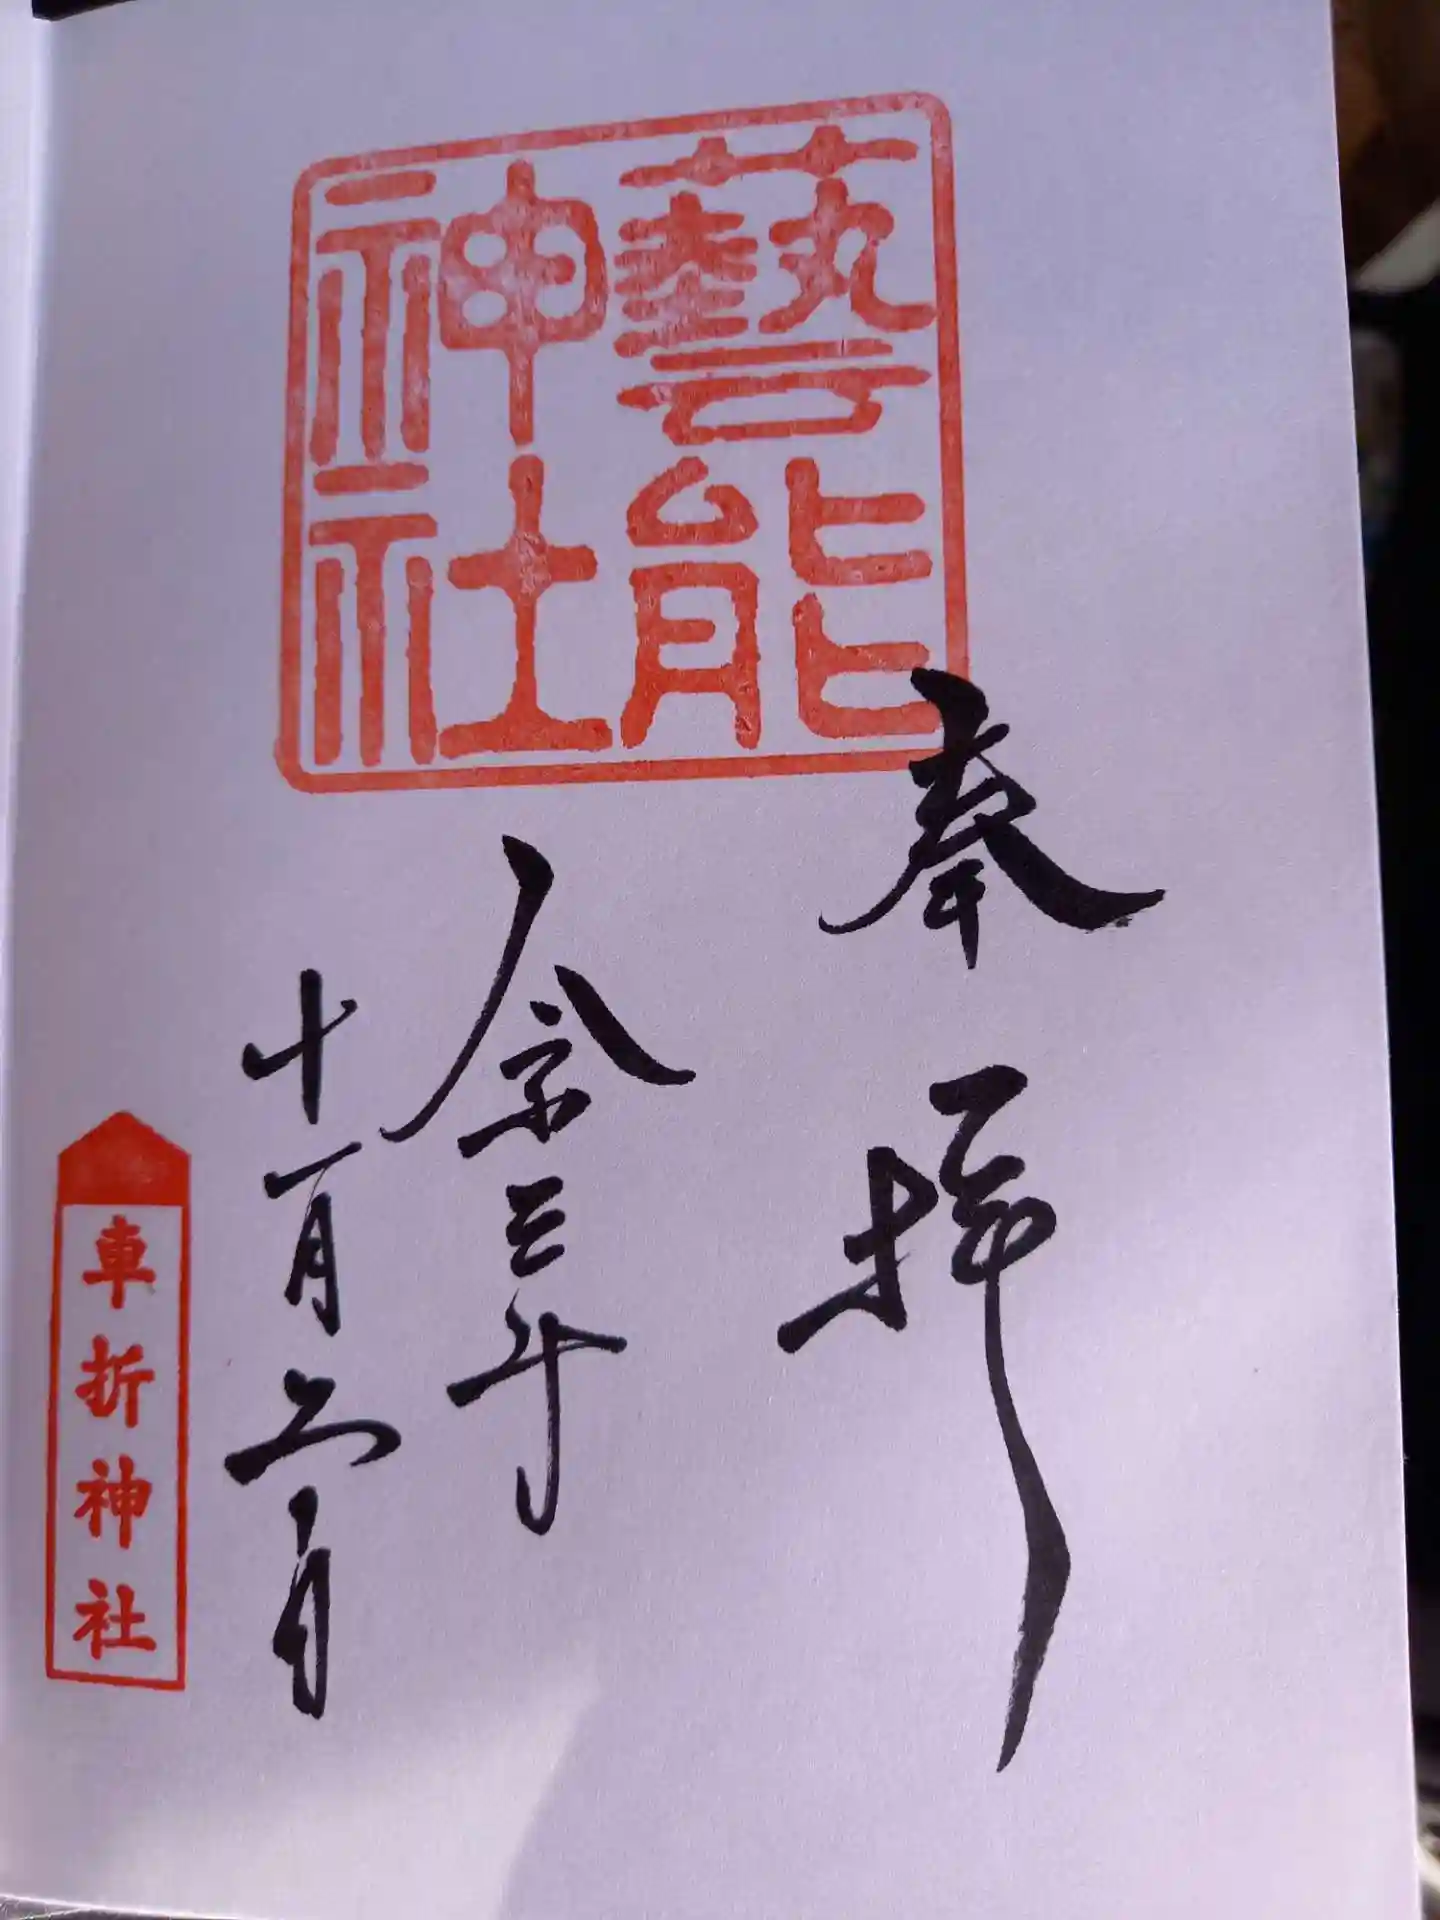 藝能
神社
奉拝
令和三年
十一月
日
車折神社